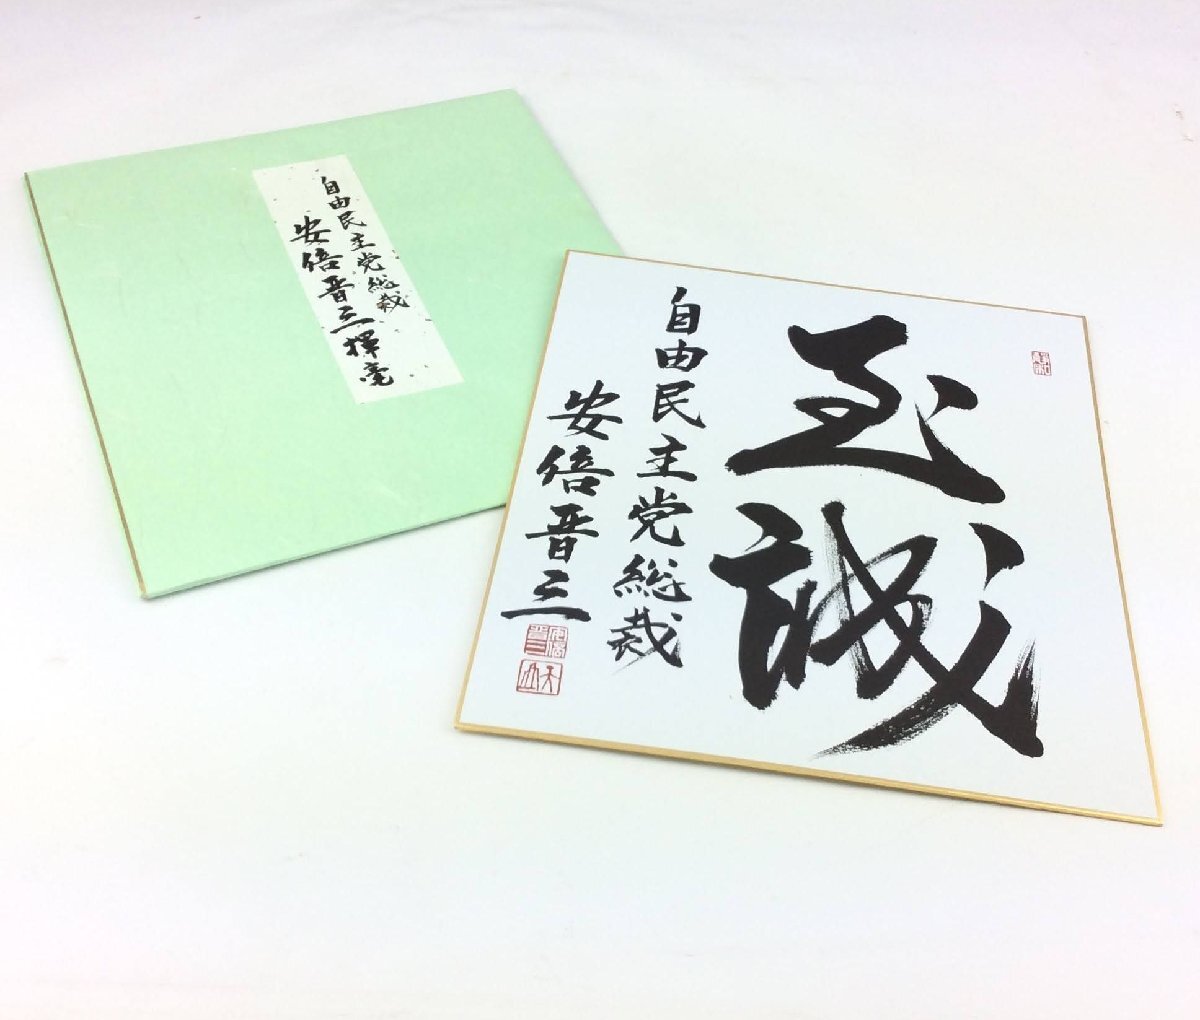 自由民主党総裁
安倍晋三揮毫
至誠
自由民主党総裁
安倍晋三